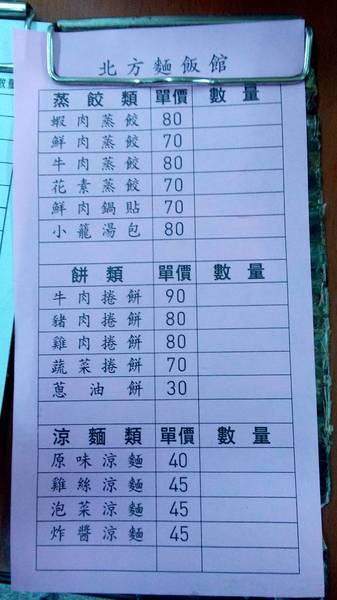 北方麵飯館
蒸餃類 單價 數量
蝦肉蒸餃 80
鮮肉蒸餃 70
牛肉蒸餃 80
花素蒸餃 70
鮮肉鍋貼 70
小籠湯包 80
餅類 單價 數量
牛肉捲餅 90
豬肉捲餅 80
雞肉捲餅 80
蔬菜捲餅 70
蔥油餅 30
涼麵類 單價 數量
原味涼麵 40
雞絲涼麵 45
泡菜涼麵 45
炸醬涼麵 45
數量